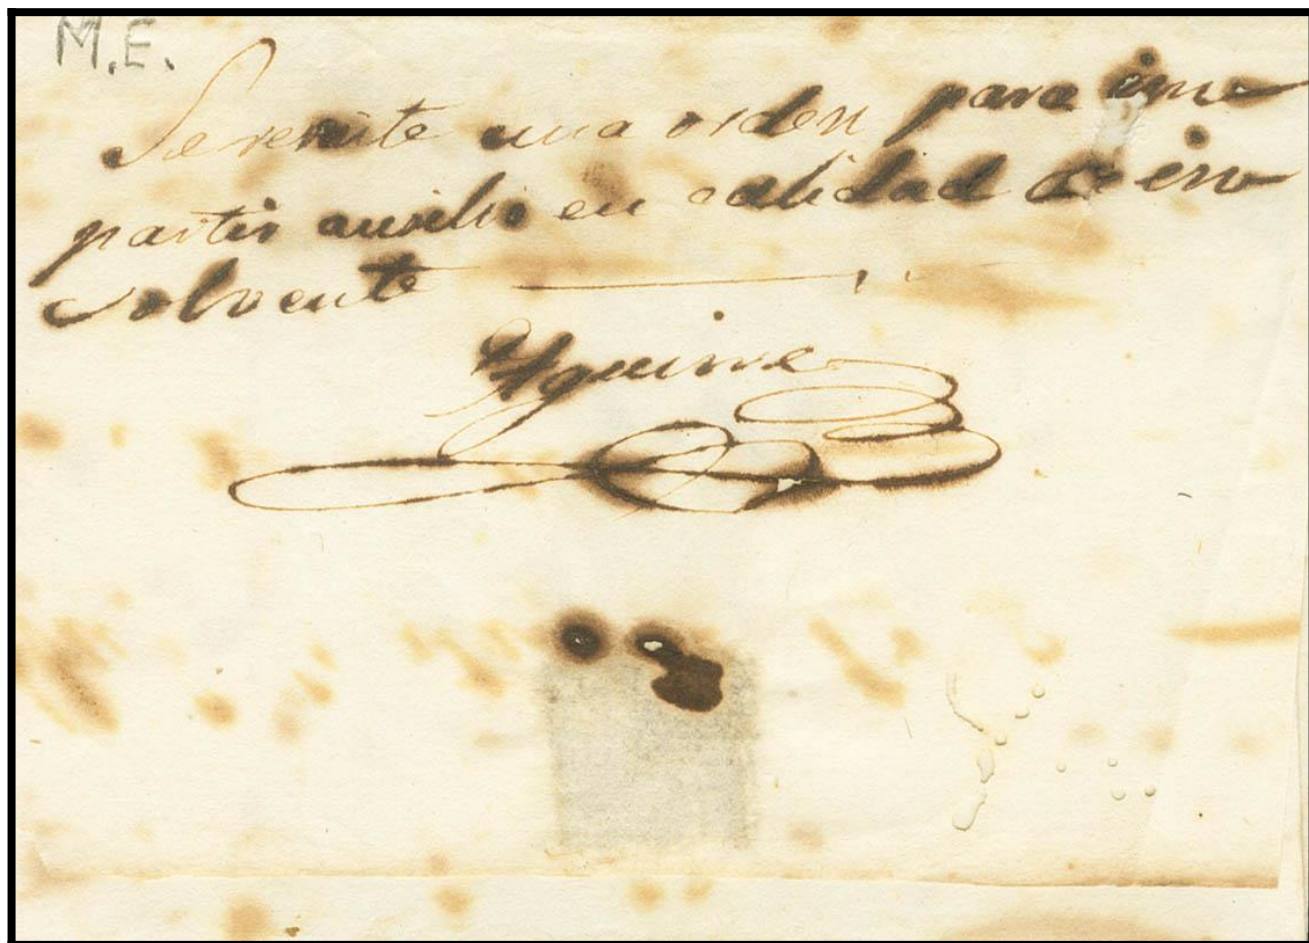 M.E.
Se remite una orden para im
partir ausilio en calidad de in
solvente